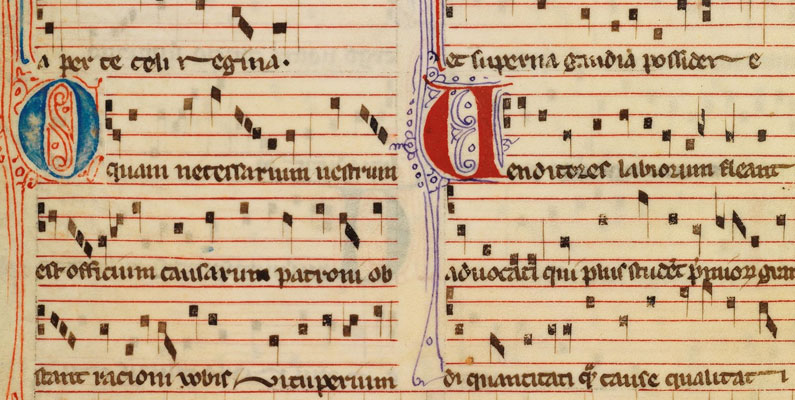 a per te celi regina.
O quam necessarium uestrum
est officium causarum patroni ob
stant racioni uobis uituperium
et superna gaudia possidere
Venditores labiorum fleant
aduocati qui plus studet
di quantitati cause qualitati